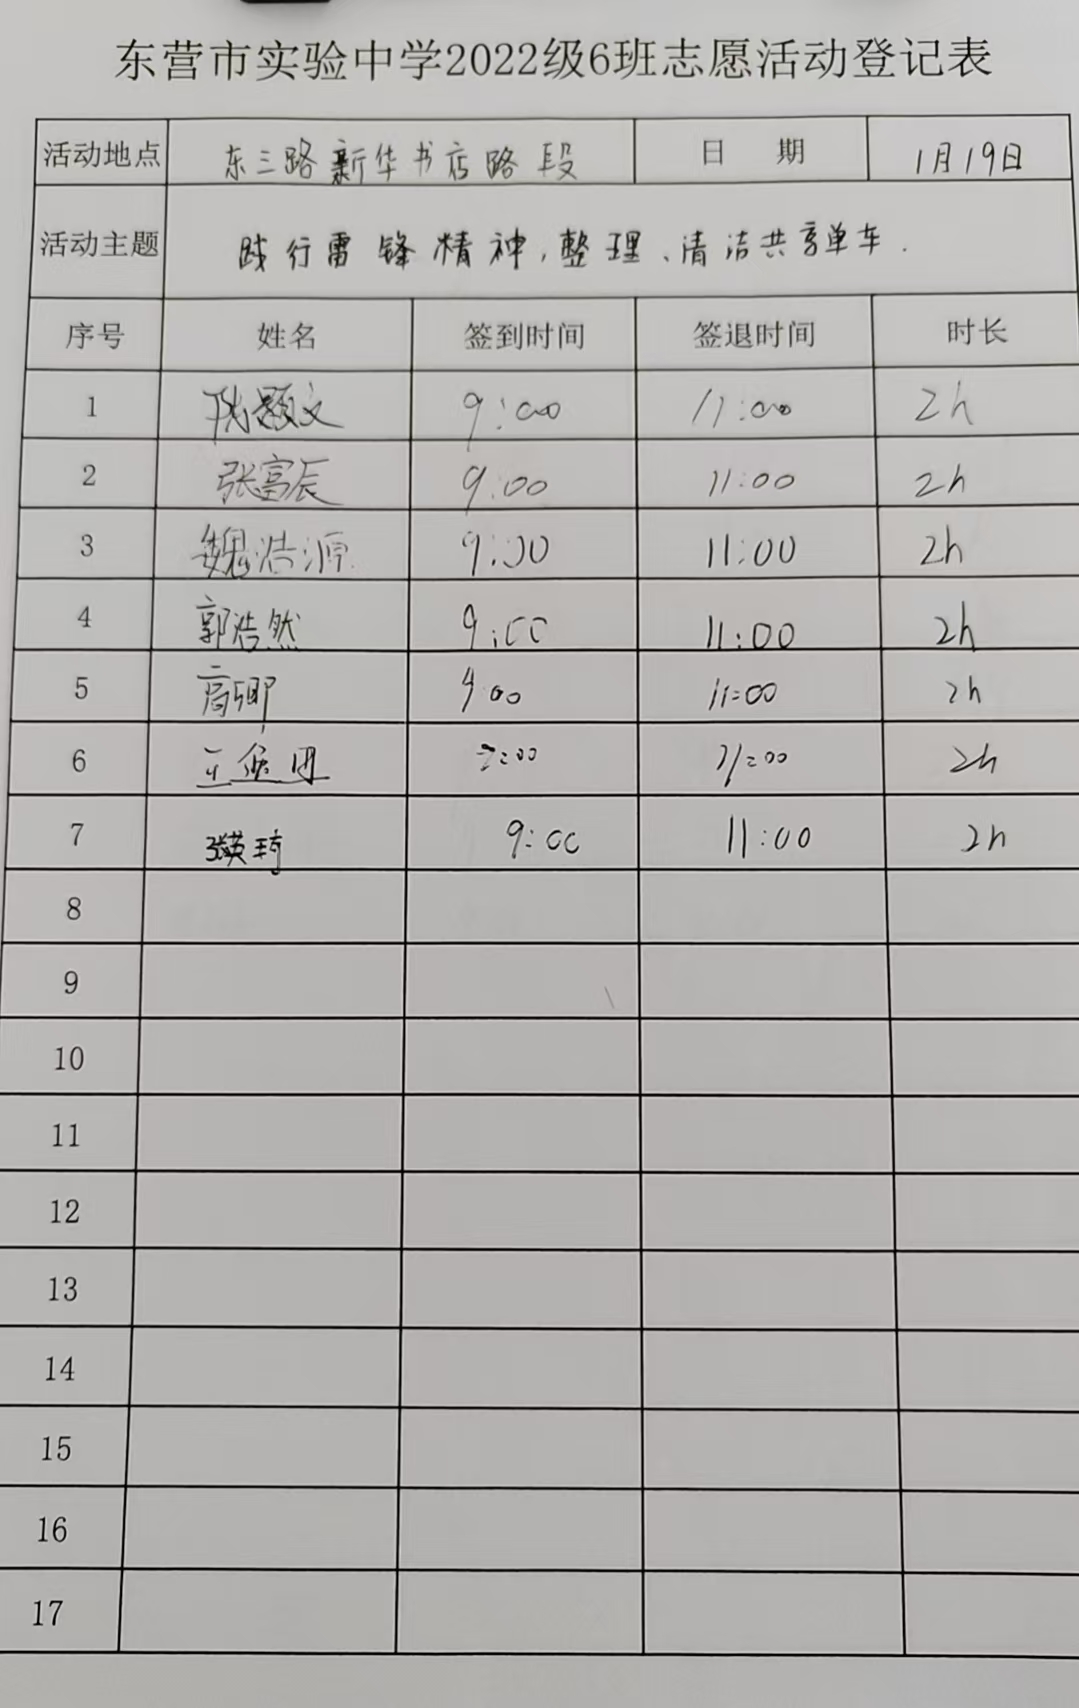 东营市实验中学2022级6班志愿活动登记表
活动地点 东三路新华书店路段 日 期 1月19日
活动主题 践行雷锋精神,整理、清洁共享单车.
序号 姓名 签到时间 签退时间 时长
1 9:00 11:00 2h
2 张富辰 9:00 11:00 2h
3 魏浩源 9:00 11:00 2h
4 郭浩然 9:00 11:00 2h
5 9:00 11:00 2h
6 11:00 2h
7 张英琦 9:00 11:00 2h
8
9
10
11
12
13
14
15
16
17